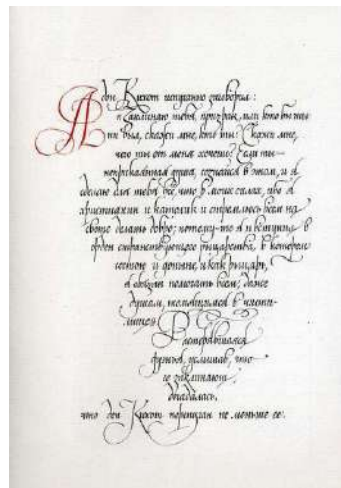 А дон Кихот испуганно заговорил:
– Заклинаю тебя, призрак, или кто бы ты
ни был, скажи мне, кто ты? Скажи мне,
чего ты от меня хочешь? Если ты –
неприкаянная душа, сознайся в этом, и я
сделаю для тебя всё, что в моих силах, ибо я
христианин и католик и стремлюсь всем на
свете делать добро; потому-то я и вступил в
орден странствующего рыцарства, в котором
состою и доныне, и как рыцарь,
я обязан помогать всем, даже
душам, томящимся в чисти-
лище.
Растерявшаяся
дуэнья, услышав, что
её заклинают,
догадалась,
что дон Кихот перепуган не меньше её.